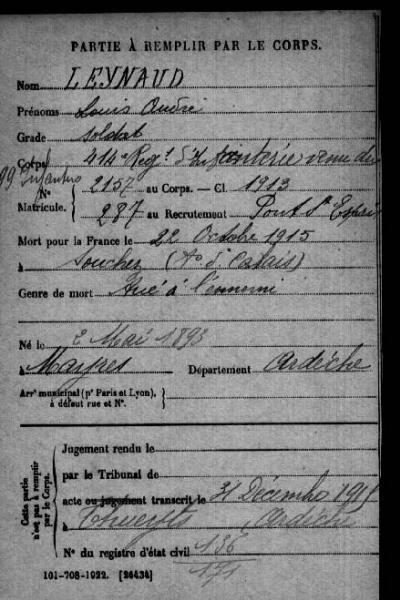 PARTIE À REMPLIR PAR LE CORPS.
Nom LEYNAUD
Prénoms Louis André
Grade Soldat
Corps 414e Régt d'Infanterie venu du
99 Infantrie
N° 2157 au Corps. — Cl. 1913
Matricule. 287 au Recrutement Pont St Esprit
Mort pour la France le 22 Octobre 1915
à Souchez (Pas d. Calais)
Genre de mort Tué à l'ennemi
Né le 2 Mai 1893
à Mayres Département Ardèche
Arrt municipal (pr Paris et Lyon),
à défaut rue et N°.
Cette partie n'est pas à remplir par le Corps.
Jugement rendu le
par le Tribunal de
acte ou jugement transcrit le 31 Décembre 1915
à Thueyts Ardèche
N° du registre d'état civil 136
171
101-708-1922. [26434]